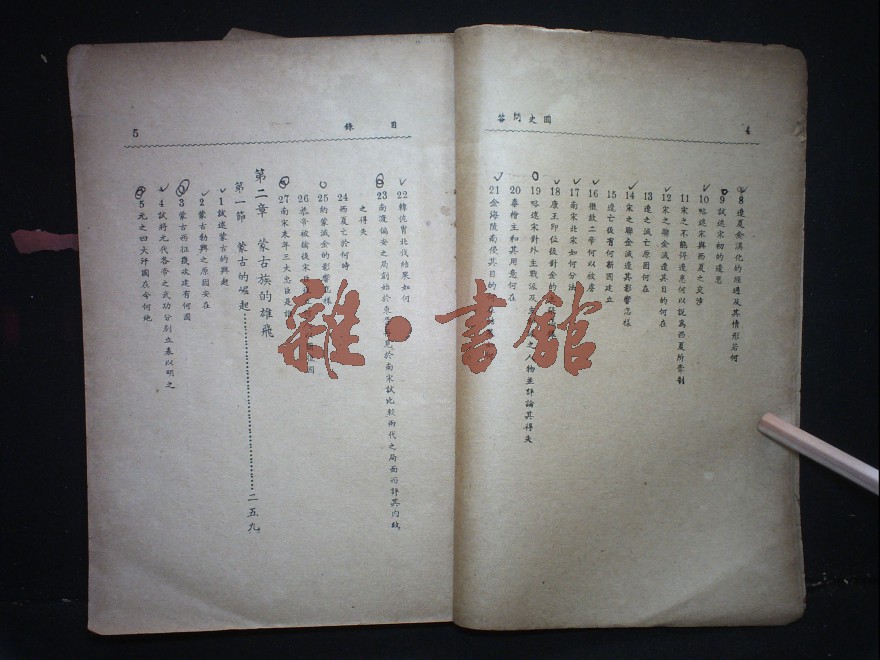 4
國史問答
8 遼夏金漢化的經過及其情形若何
9 試述宋初的邊患
10 略述宋與西夏之交涉
11 宋之不能得遼患何以説爲西夏所牽制
12 宋之聯金滅遼其目的何在
13 遼之滅亡原因何在
14 宋之聯金滅遼其影響怎樣
15 遼亡後有何新國建立
16 徽欽二帝何以被虜
17 南宋北宋如何分法
18 康王即位後對金的
19 略述宋對外主戰派及 之人物並評論其得失
20 秦檜主和其用意何在
21 金海陵南侵其目的
目錄
5
22 韓侂胄北伐結果如何
23 南渡偏安之局創始於東 見於南宋試比較兩代之局面而評其内政
之得失
24 西夏亡於何時
25 約蒙滅金的影響怎樣
26 恭帝被擒後宋
27 南宋末年三大忠臣是誰
第二章 蒙古族的雄飛
第一節 蒙古的崛起 二五九
1 試述蒙古的興起
2 蒙古勃興之原因安在
3 蒙古西征幾次建有何國
4 試將元代各帝之武功分别立表以明之
5 元之四大汗國在今何地
雜·書館